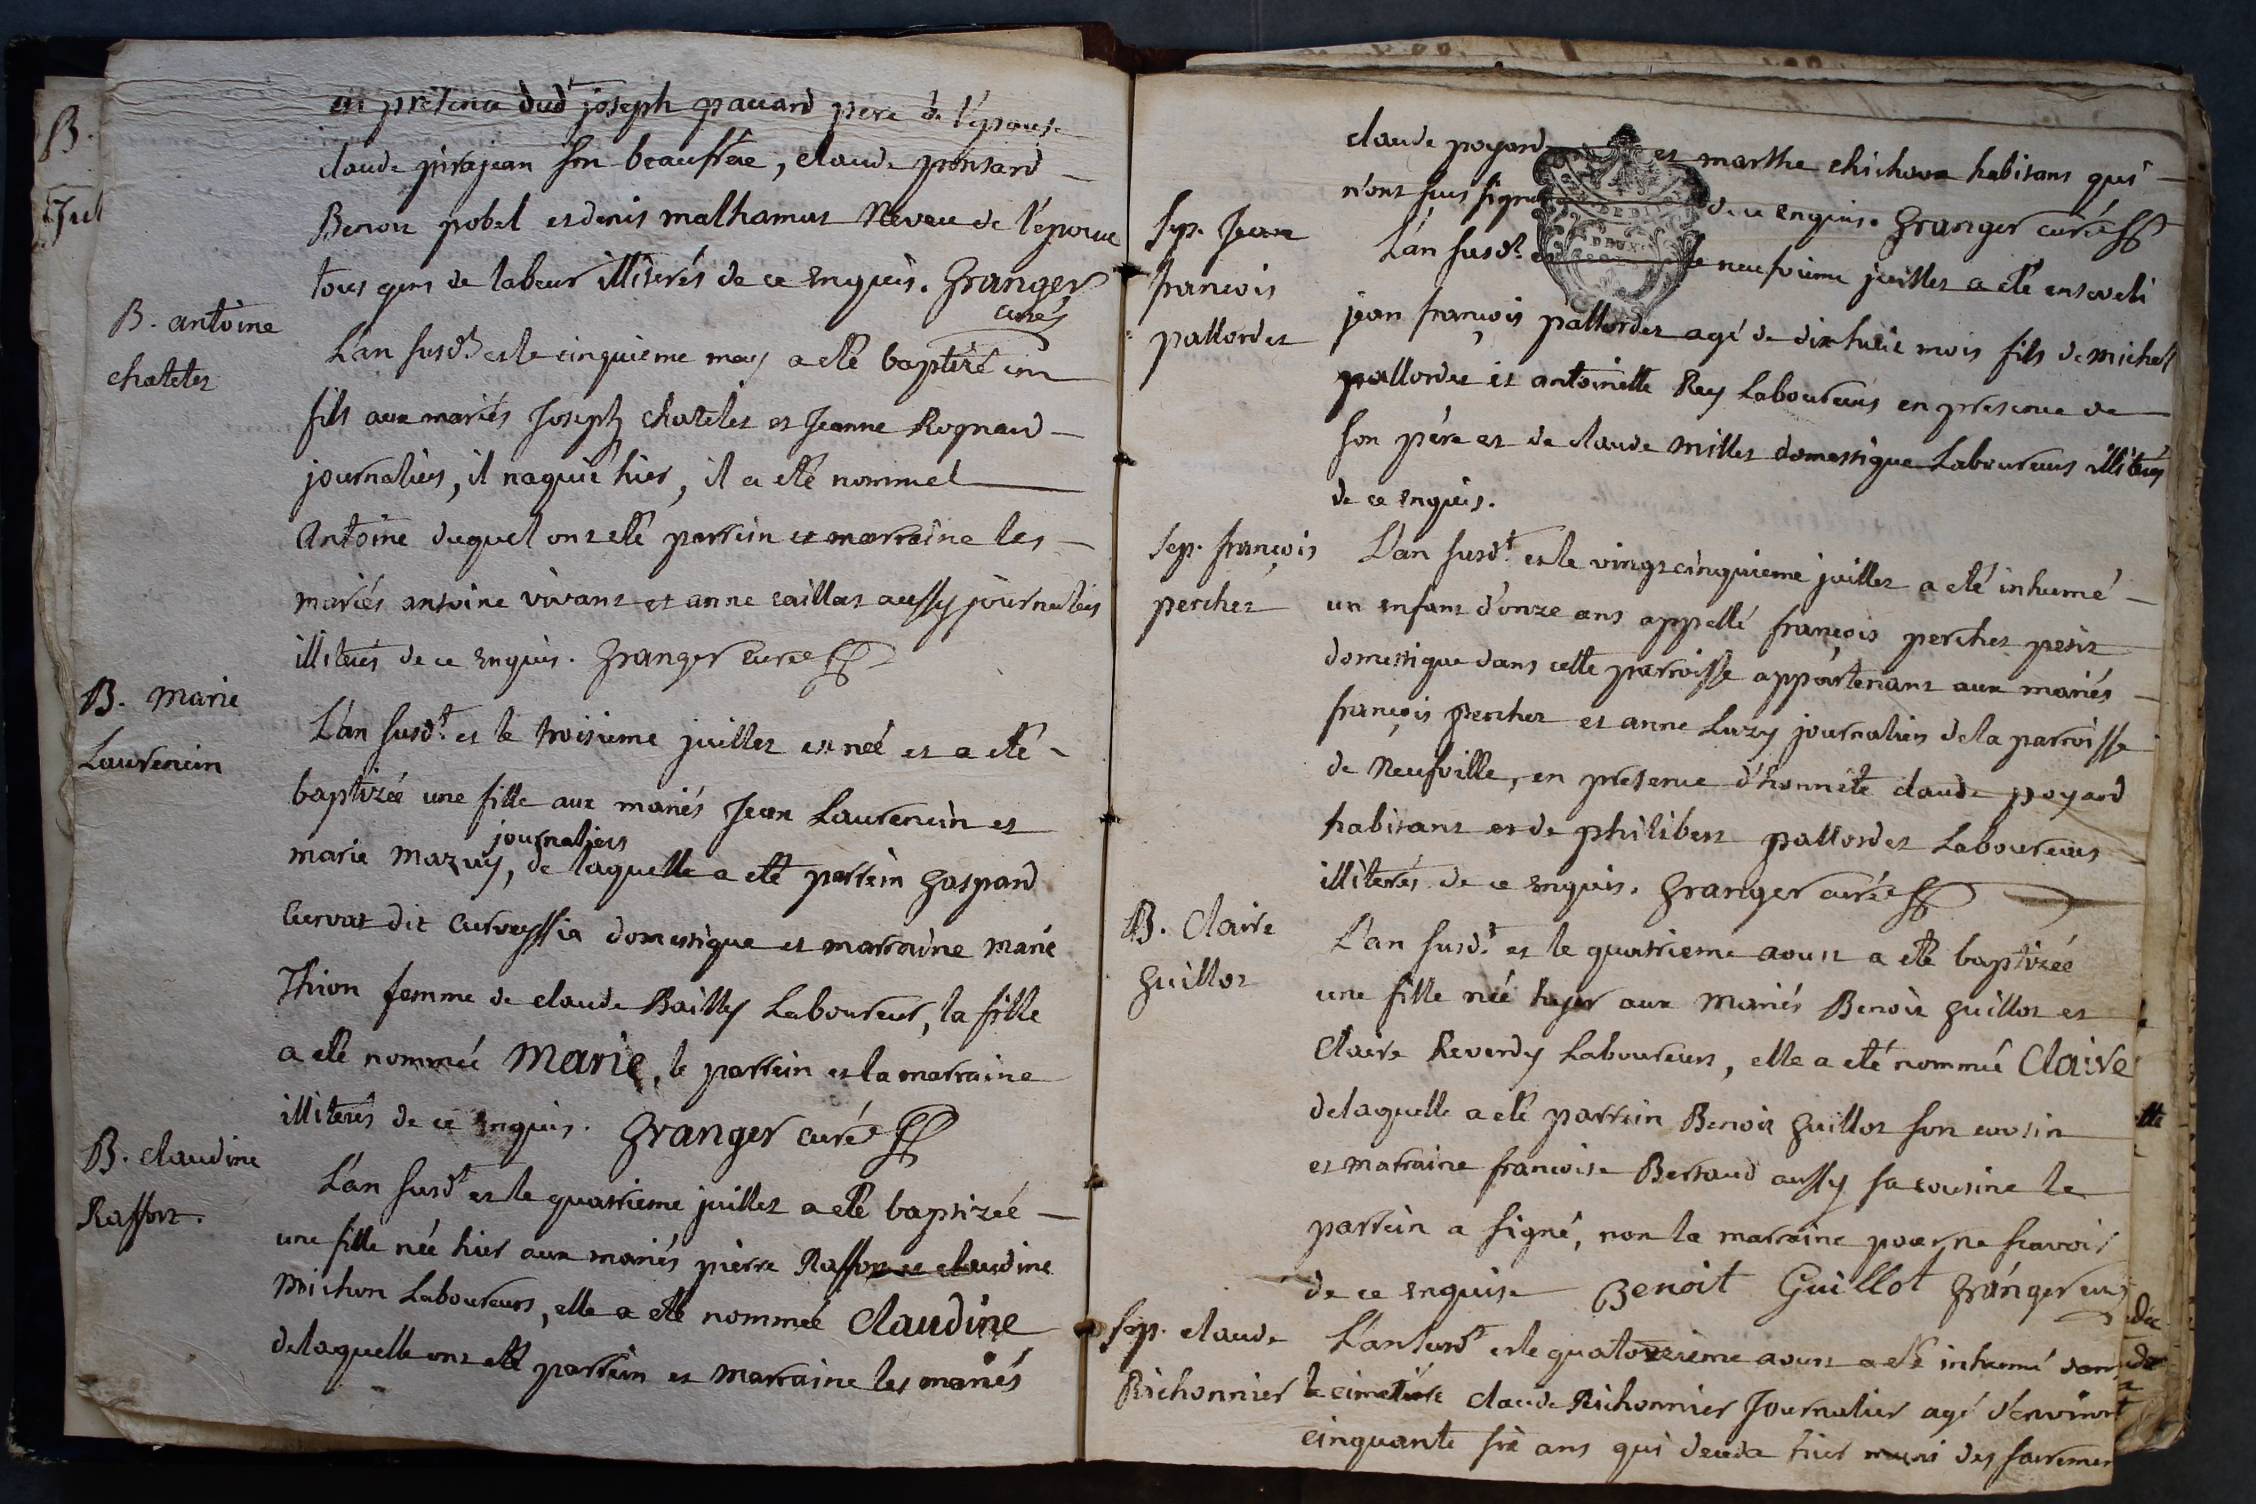 en presence dud^t joseph pauard pere de l'epouse
claude pirajean son beaufrere, claude ponsard
Benoit pobel et denis malhamat Neveu de l'epouse
tous gens de labeur illiterés de ce enquis. Granger
curé
B. antoine
chatelet
L'an susd^t et le cinquieme may a eté baptizé un
fils aux mariés Joseph chatelet et Jeanne Rognard
journaliers, il naquit hier, il a eté nommé
Antoine duquel ont eté parrein et marraine les
mariés antoine vivant et anne caillat aussy journaliers
illiterés de ce enquis. Granger curé
B. marie
Laurencin
L'an susd^t et le troisieme juillet est née et a eté
baptizée une fille aux mariés Jean Laurencin et
journaliers
marie Mazuy, de laquelle a eté parrein gaspard
Curvat dit Curveyssia domestique et marraine marie
Thion femme de claude Bailly Laboureur, la fille
a eté nommée Marie, le parrein et la marraine
illiterés de ce enquis. Granger curé
B. claudine
Raffort.
L'an susd^t et le quatrieme juillet a eté baptizée
une fille née hier aux mariés pierre Raffort et claudine
Michon Laboureurs, elle a eté nommée Claudine
delaquelle ont eté parrein et marraine les mariés
claude poyard et marthe chichoux habitans qui
n'ont sus signer de ce enquis. Granger curé
Sep. Jean
francois
pallordet
L'an susd^t et le neufvieme juillet a eté enseveli
jean françois pallordet agé de dix huit mois fils de michel
pallordet et antoinette Rey Laboureurs en presence de
son père et de claude millet domestique Laboureurs illiterés
de ce enquis.
Sep. françois
perchet
L'an susd^t et le vingt cinquieme juillet a eté inhumé
un enfant d'onze ans appellé françois perchet petit
domestique dans cette parroisse appartenant aux mariés
françois perchet et anne Luzy journaliers de la parroisse
de Neufville, en presence d'honnête claude poyard
habitant et de philibert pallordet Laboureurs
illiterés de ce enquis. Granger curé
B. Claire
Guillot
L'an susd^t et le quatrieme aoust a eté baptizée
une fille née hyer aux Mariés Benoit Guillot et
Claire Reverdy Laboureurs, elle a eté nommée Claire
delaquelle a eté parrein Benoit Guillot son cousin
et marraine francoise Bertaud aussy sa cousine le
parrein a signé, non la marraine pour ne scavoir
de ce enquise Benoit Guillot Granger curé
Sep. claude
Richonnier
L'an susd^t et le quatorzieme aoust a eté inhumé dans
le cimetière claude Richonnier Journalier agé d'environ
cinquante six ans qui deceda hier muni des sacremen